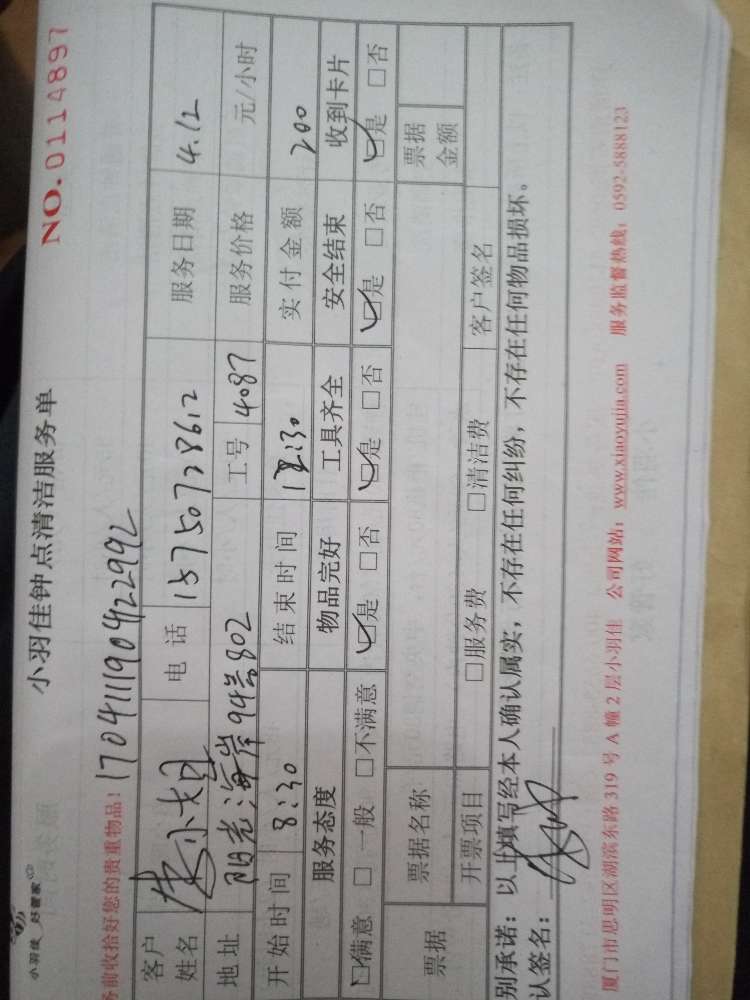 小羽佳 好管家
小羽佳钟点清洁服务单
NO.0114897
务前收拾好您的贵重物品！ 170411190422992
客户姓名 电话 15750728612 服务日期 4.12
地址 阳光海岸94号802 工号 4087 服务价格 元/小时
开始时间 8:30 结束时间 12:30 实付金额 200
服务态度 物品完好 工具齐全 安全结束 收到卡片
☑满意 □一般 □不满意 ☑是 □否 ☑是 □否 ☑是 □否 ☑是 □否
票据 票据名称 票据金额
开票项目 □服务费 □清洁费 客户签名
别承诺：以上填写经本人确认属实，不存在任何纠纷，不存在任何物品损坏。
认签名：
厦门市思明区湖滨东路319号A幢2层小羽佳 公司网站：www.xiaoyujia.com 服务监督热线：0592-5888123